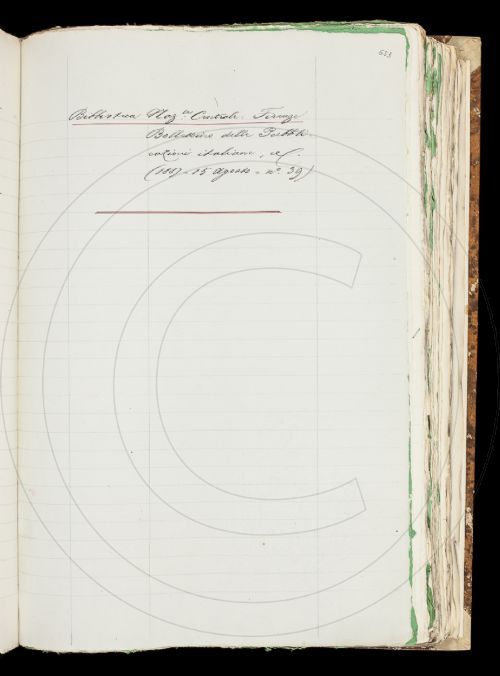 653
Biblioteca Naz.le Centrale. Firenze
Bollettino delle Pubbli-
cazioni italiane, ec.
(1887 - 15 Agosto - nº 39)